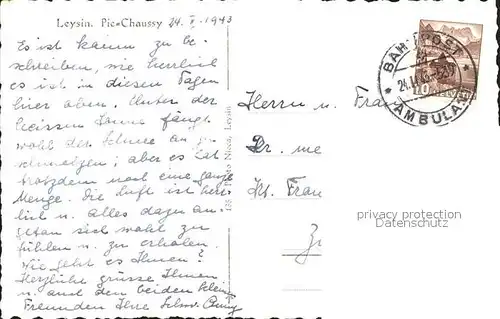 Leysin. Pic-Chaussy
24. 1943
Es ist kaum zu be-
schreiben, wie herrlich
es ist in diesen Tagen
hier oben. Unter der
heissen Sonne fängt
wohl der Schnee an zu
schmelzen; aber es hat
trotzdem noch eine ganze
Menge. Die Luft ist herr-
lich u. alles dazu an-
getan sich wohl zu
fühlen u. zu erholen.
Wie geht es Ihnen?
Herzliche grüsse Ihnen
u. auch den beiden kleinen
Freunden Ihre Schw.
Nicca, Leysin
BAHNPOST
AMBULANT
Herrn u. Frau
Dr. me
St. Frau
Z
privacy protection
Datenschutz